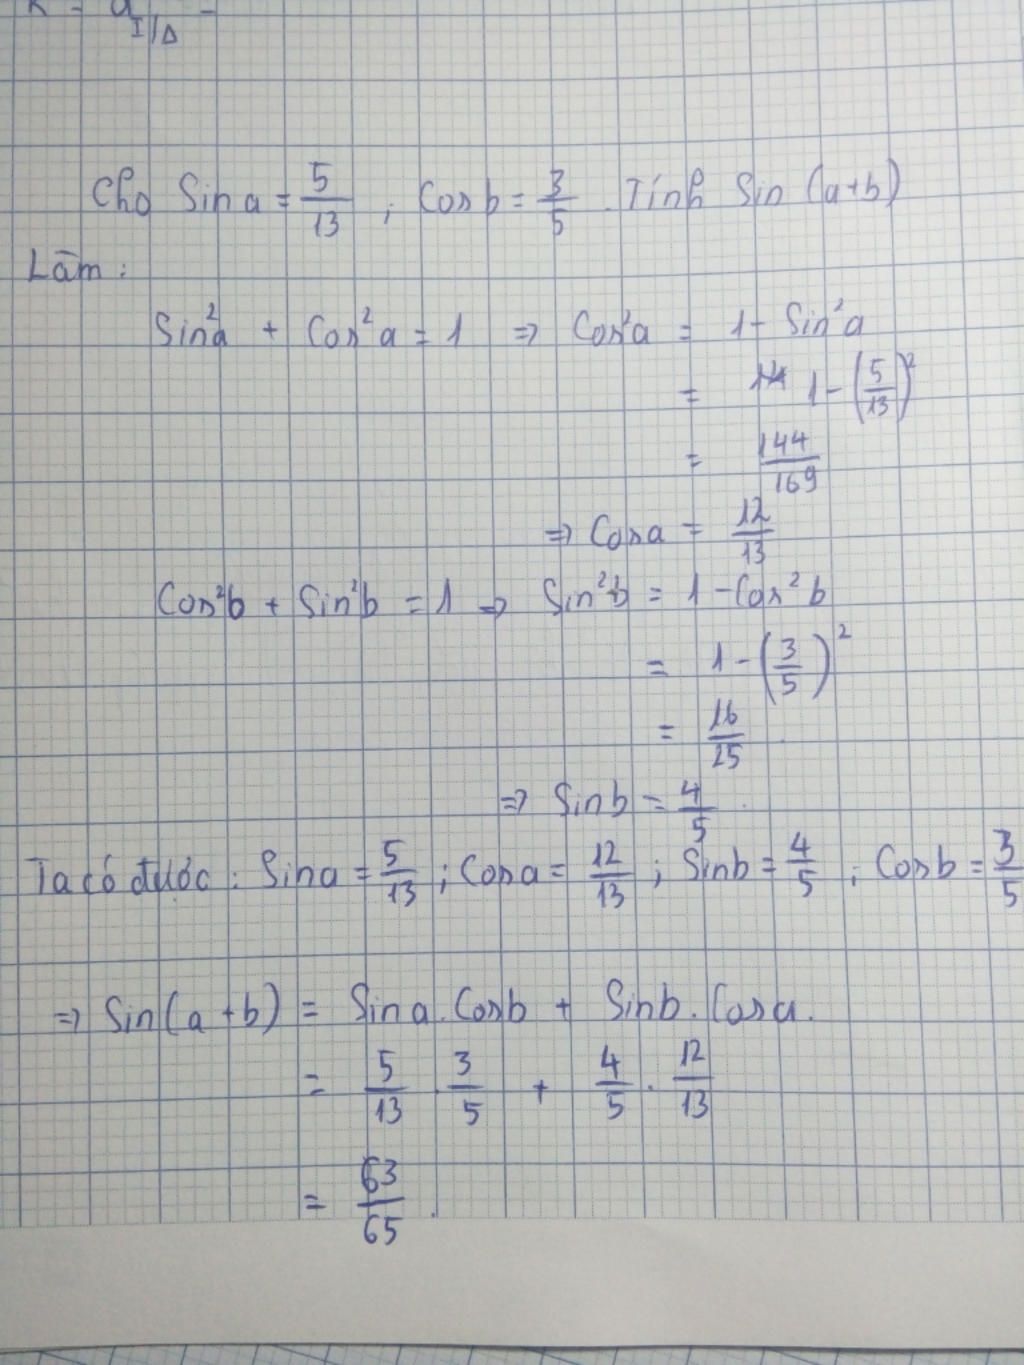 I/Δ
Cho Sin a = 5/13 ; Cos b = 3/5 . Tính Sin (a+b)
Làm :
Sin²a + Cos²a = 1 ⇒ Cos²a = 1 - Sin²a
= 1 - (5/13)²
= 144/169
⇒ Cos a = 12/13
Cos²b + Sin²b = 1 ⇒ Sin²b = 1 - Cos²b
= 1 - (3/5)²
= 16/25
⇒ Sin b = 4/5 .
Ta có được : Sin a = 5/13 ; Cos a = 12/13 ; Sin b = 4/5 ; Cos b = 3/5
⇒ Sin(a+b) = Sin a . Cos b + Sin b . Cos a .
= 5/13 . 3/5 + 4/5 . 12/13
= 63/65 .